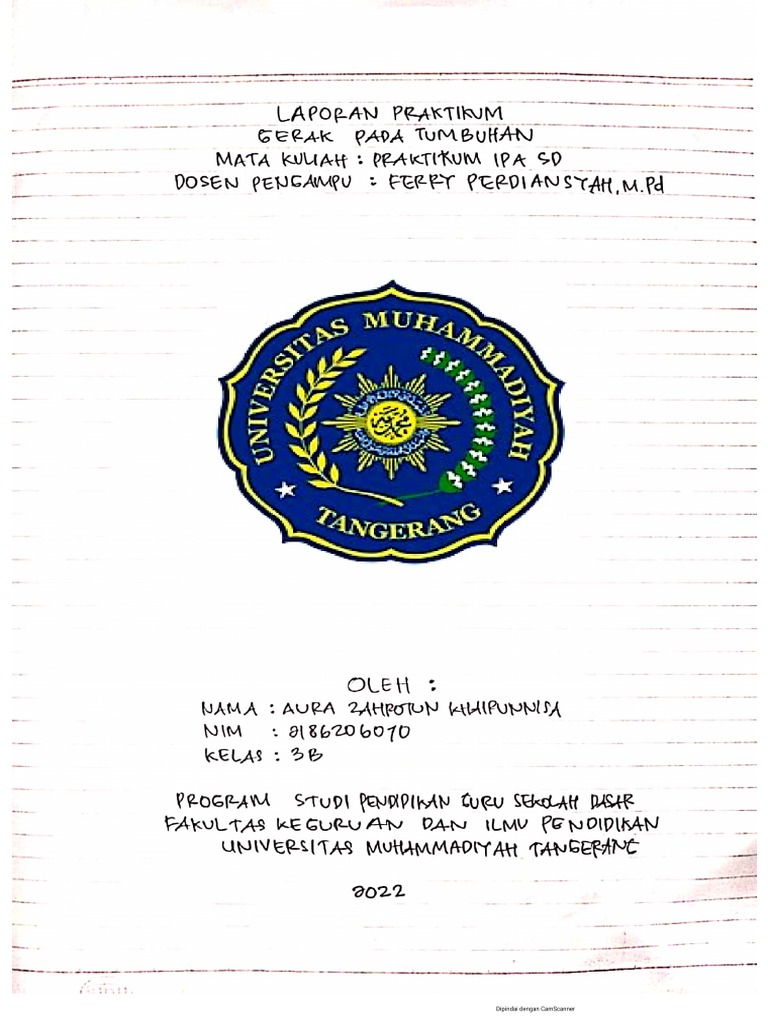 LAPORAN PRAKTIKUM
GERAK PADA TUMBUHAN
MATA KULIAH : PRAKTIKUM IPA SD
DOSEN PENGAMPU : FERRY PERDIANSYAH, M.Pd
UNIVERSITAS MUHAMMADIYAH
TANGERANG
OLEH :
NAMA : AURA ZAHROTUN
NIM : 2186206070
KELAS : 3B
PROGRAM STUDI PENDIDIKAN GURU SEKOLAH DASAR
FAKULTAS KEGURUAN DAN ILMU PENDIDIKAN
UNIVERSITAS MUHAMMADIYAH TANGERANG
2022
Dipindai dengan CamScanner